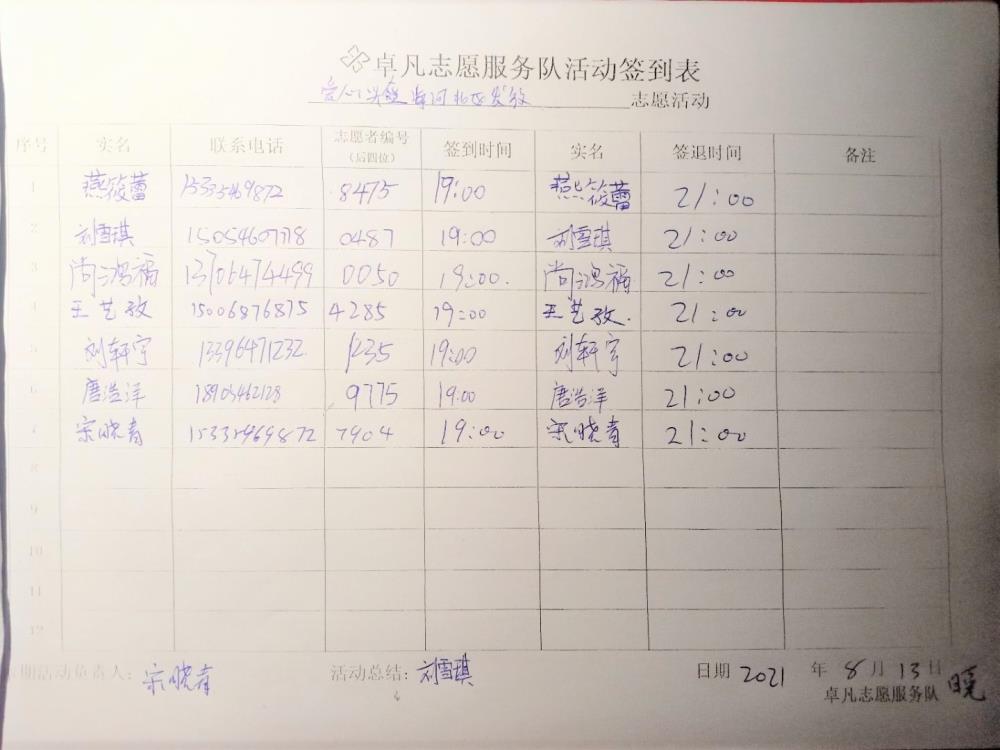 卓凡志愿服务队活动签到表
爱心头盔 发放 志愿活动
序号 实名 联系电话 志愿者编号(后四位) 签到时间 实名 签退时间 备注
1 燕筱蕾 8475 19:00 燕筱蕾 21:00
2 刘雪琪 15054607718 0487 19:00 刘雪琪 21:00
3 尚鸿福 13706474499 0050 19:00. 尚鸿福 21:00
4 王艺孜 15006876875 4285 19:00 王艺孜. 21:00
5 刘轩宇 13396471232 1235 19:00 刘轩宇 21:00
6 唐浩洋 18905462128 9775 19:00 唐浩洋 21:00
7 宋晓青 15335469872 7904 19:00 宋晓青 21:00
8
9
10
11
12
活动负责人: 宋晓青 活动总结: 刘雪琪 日期 2021 年 8 月 13 日
卓凡志愿服务队 晓